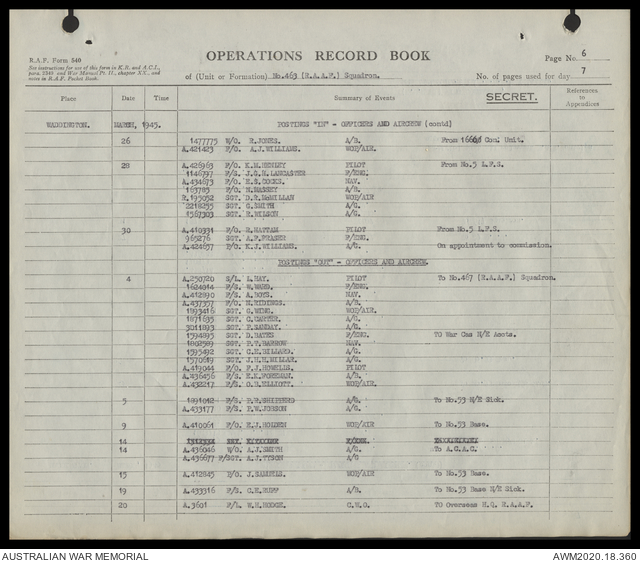 R.A.F. Form 540
See instructions for use of this form in K.R. and A.C.I.,
para. 2349 and War Manual Pt. II., chapter XX., and
notes in R.A.F. Pocket Book.
OPERATIONS RECORD BOOK
of (Unit or Formation) No.463 (R.A.A.F.) Squadron.
Page No. 6
No. of pages used for day 7
Place Date Time Summary of Events SECRET. References to Appendices
WADDINGTON. MARCH, 1945. POSTINGS "IN" - OFFICERS AND AIRCREW (contd)
26 1477775 W/O. R.JONES. A/B. From Con. Unit.
A.421423 F/O. A.J.WILLIAMS. WOP/AIR
28 A.428963 F/O. K.M.HENLEY PILOT From No.5 L.F.S.
1146797 F/S. J.G.R.LANCASTER F/ENG.
A.434673 F/O. E.S.COCKS. NAV.
163785 F/O. N.MASSEY A/B.
R.195052 SGT. D.R.McMILLAN WOP/AIR
2218255 SGT. G.SMITH A/G.
1567303 SGT. R.WILSON A/G.
30 A.418331 F/O. R.HATTAM PILOT From No.5 L.F.S.
965276 SGT. A.F.FRASER F/ENG.
A.424657 P/O. K.J.WILLIAMS. A/G. On appointment to commission.
POSTINGS "OUT" - OFFICERS AND AIRCREW.
4 A.250720 S/L. L.HAY. PILOT To No.467 (R.A.A.F.) Squadron.
1624014 F/S. W.WARD. F/ENG.
A.412890 F/S. A.BOYS. NAV.
A.437357 F/O. N.RIDINGS. A/B.
1893416 SGT. G.WING. WOP/AIR
1871635 SGT. C.CARTER. A/G.
3011893 SGT. P.SANDAY. A/G.
1594895 SGT. D.BATES F/ENG. TO War Cas N/E Accts.
1802589 SGT. P.T.BARROW NAV.
1595492 SGT. C.E.HILLARD. A/G.
1570619 SGT. J.H.H.WILLAR. A/G.
A.419044 F/O. F.J.HOWELLS. PILOT
A.436456 F/S. K.K.FOREMAN. A/B.
A.432217 F/S. O.H.ELLIOTT. WOP/AIR.
5 1891042 F/S. P.R.SHIPHERD A/B. To No.53 N/E Sick.
A.433177 F/S. P.W.JOBSON A/G.
9 A.410061 F/O. E.J.HOLDEN WOP/AIR To No.53 Base.
14
14 A.436046 W/O A.J.SMITH A/G. To A.C.A.C.
A.436677 F/SGT. A.J.TYSON A/G
15 A.412845 F/O. J.SAMUELS. WOP/AIR To No.53 Base.
19 A.433316 F/S. C.E.RUFF A/B. To No.53 Base N/E Sick.
20 A.3601 F/L. W.H.HODGE. C.W.O. TO Overseas H.Q. R.A.A.F.
AUSTRALIAN WAR MEMORIAL
AWM2020.18.360